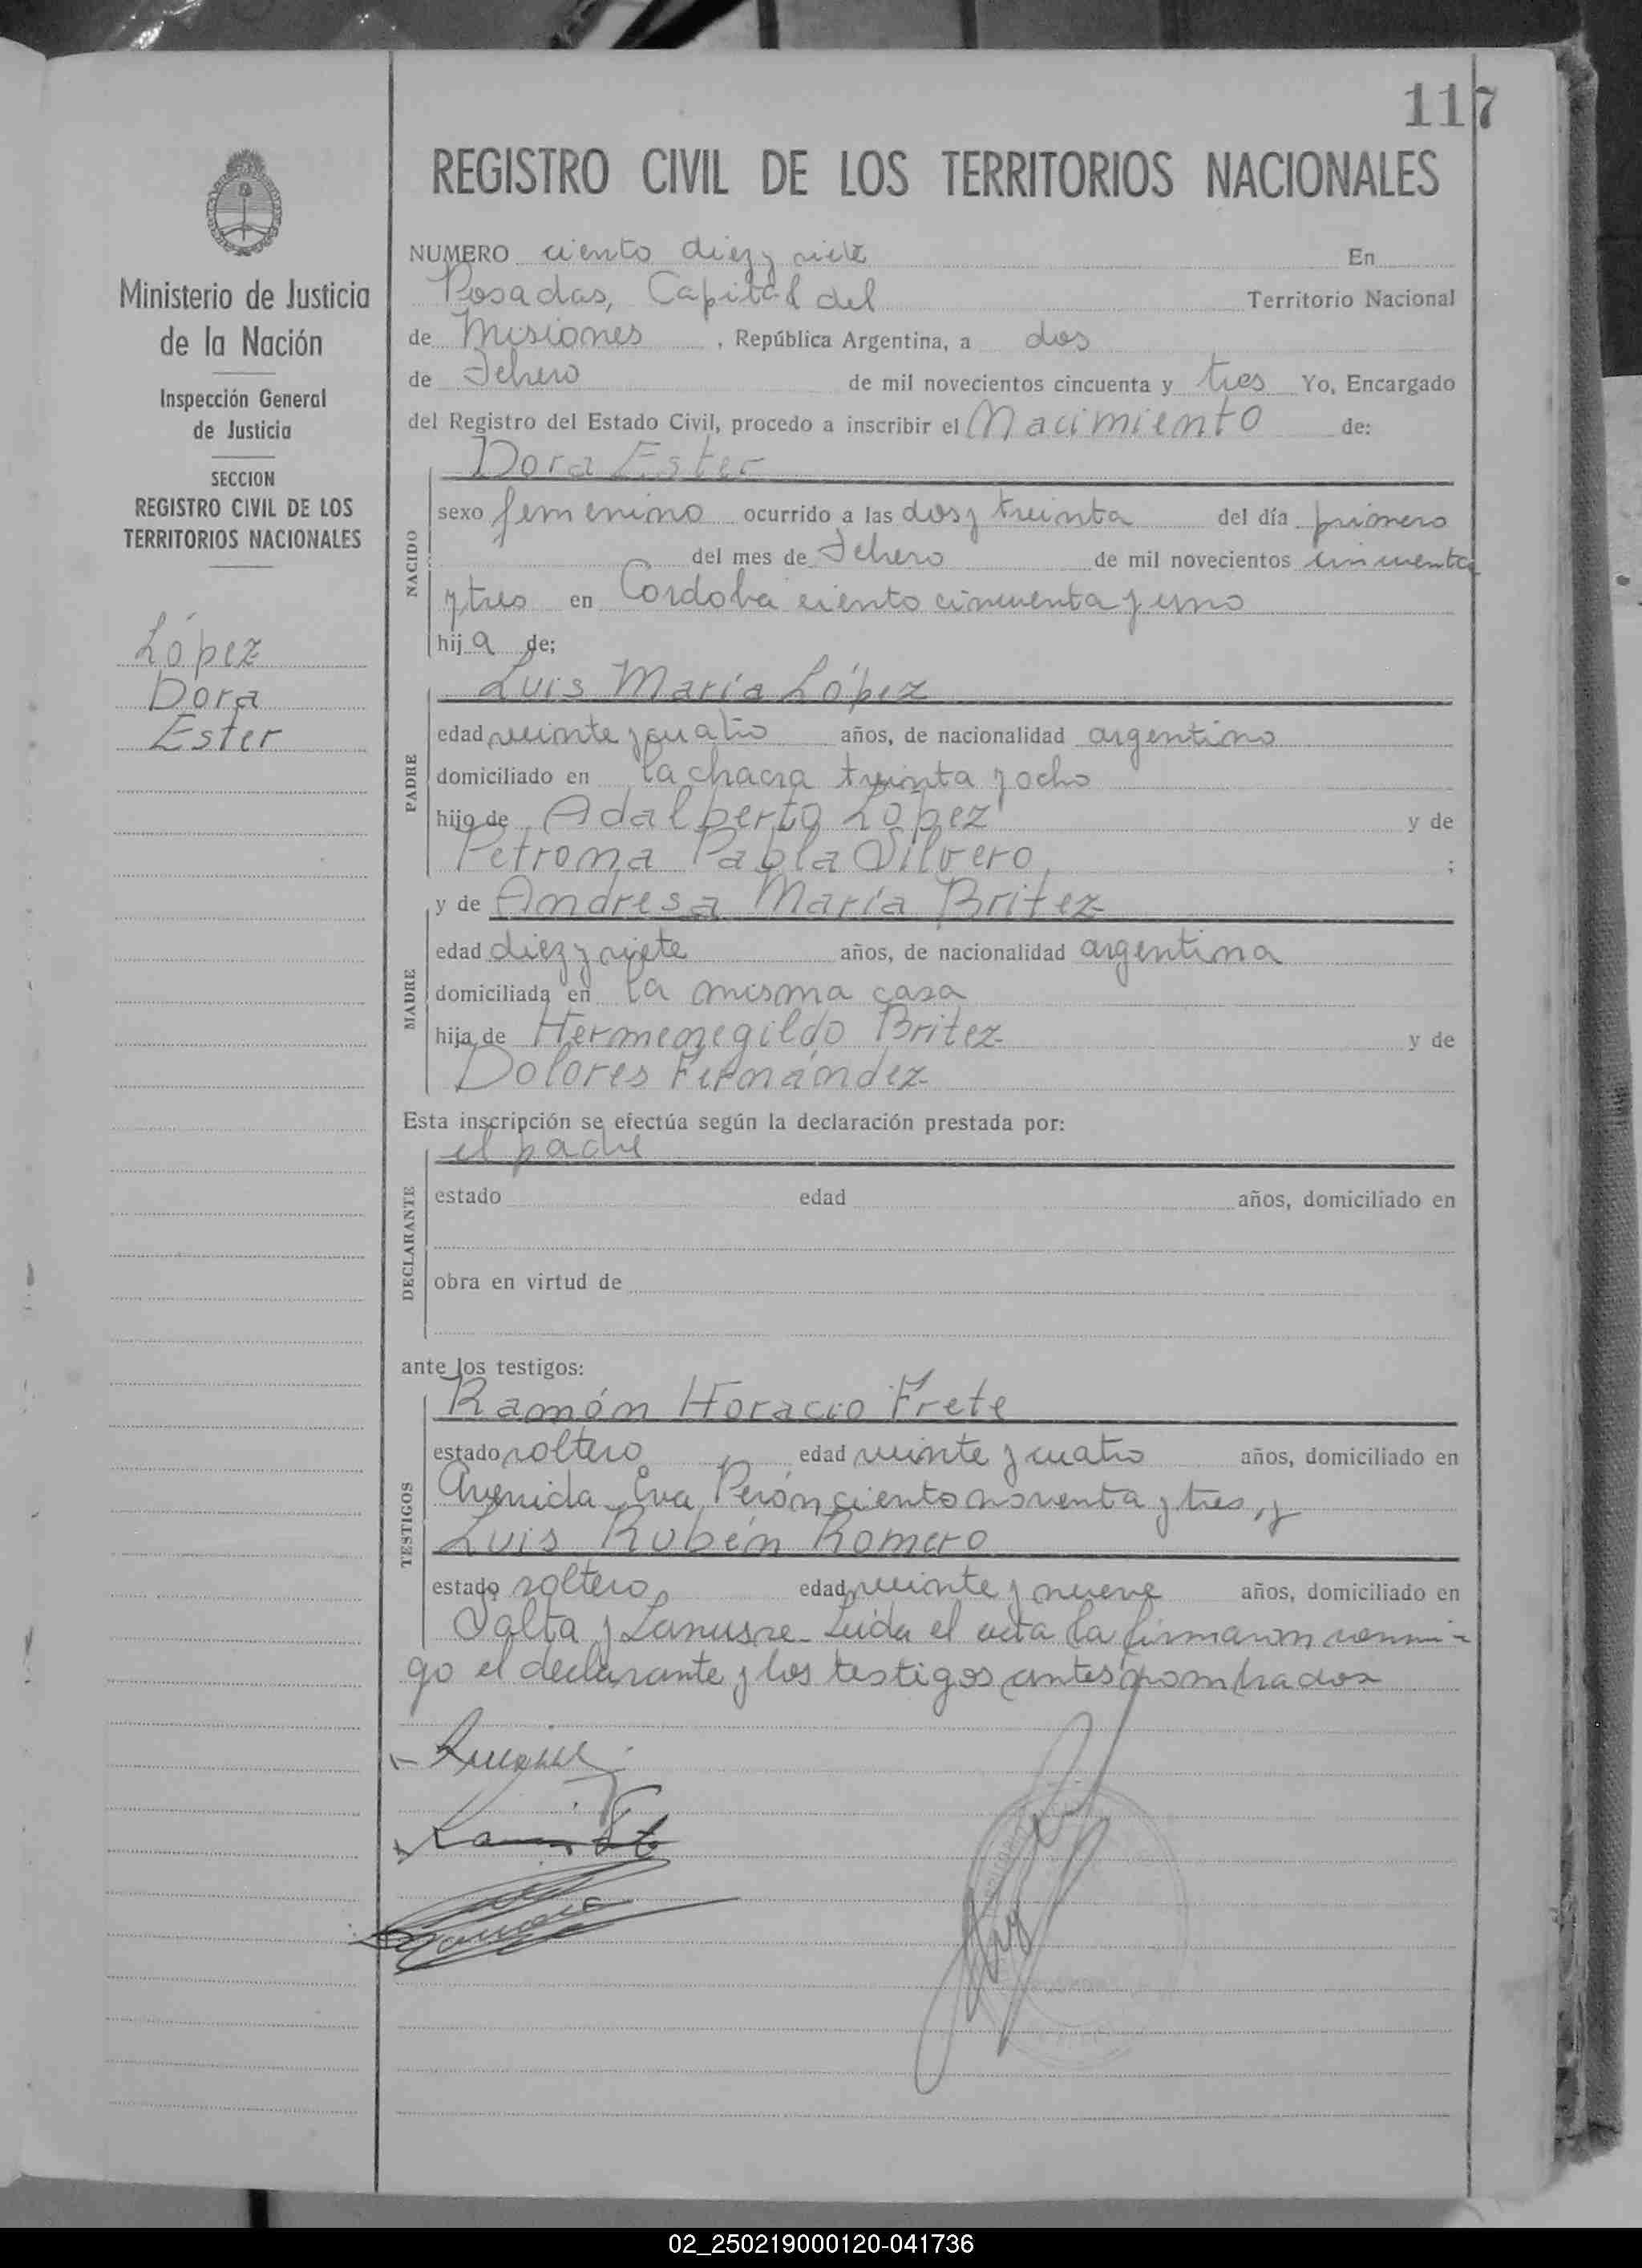 117
REGISTRO CIVIL DE LOS TERRITORIOS NACIONALES
Ministerio de Justicia
de la Nación
Inspección General
de Justicia
SECCION
REGISTRO CIVIL DE LOS
TERRITORIOS NACIONALES
López
Dora
Ester
NUMERO ciento diez y siete En
Posadas, Capital del Territorio Nacional
de Misiones, República Argentina, a dos
de Febrero de mil novecientos cincuenta y tres Yo, Encargado
del Registro del Estado Civil, procedo a inscribir el Nacimiento de:
Dora Ester
NACIDO
sexo femenino ocurrido a las dos y treinta del día primero
del mes de Febrero de mil novecientos cincuenta
y tres en Cordoba ciento cincuenta y uno
hija de;
Luis María López
PADRE
edad veinte y cuatro años, de nacionalidad argentino
domiciliado en la chacra treinta y ocho
hijo de Adalberto López y de
Petrona Pabla Silvero ;
y de Andresa María Britez
MADRE
edad diez y siete años, de nacionalidad argentina
domiciliada en la misma casa
hija de Hermenegildo Britez y de
Dolores Fernández
Esta inscripción se efectúa según la declaración prestada por:
el padre
DECLARANTE
estado edad años, domiciliado en
obra en virtud de
ante los testigos:
Ramón Horacio Frete
TESTIGOS
estado soltero edad veinte y cuatro años, domiciliado en
Avenida Eva Perón ciento noventa y tres, y
Luis Rubén Romero
estado soltero edad veinte y nueve años, domiciliado en
Salta y Lanusse - Leida el acta la firmaron conmi-
go el declarante y los testigos antes nombrados
02_250219000120-041736